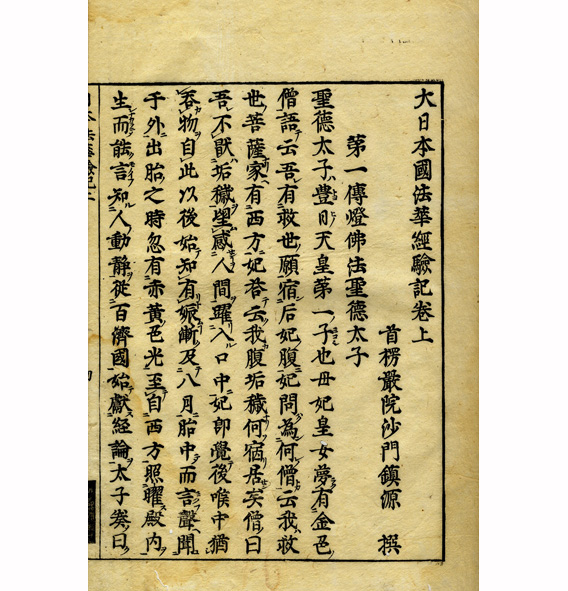 大日本國法華經驗記卷上
首楞嚴院沙門鎮源 撰
第一傳燈佛法聖德太子
聖德太子豊日天皇第一子也母妃皇女夢有金色
僧語云吾有救世願宿后妃腹妃問為何僧云我救
世菩薩家有西方妃荅云我腹垢穢何宿居矣僧曰
吾不厭垢穢望感人間躍入口中妃即覺後喉中猶
吞物自此以後始知有娠漸及八月胎中而言聲聞
于外出胎之時忽有赤黃色光至自西方照曜殿内
生而能言知人動靜從百濟國始獻經論太子奏曰